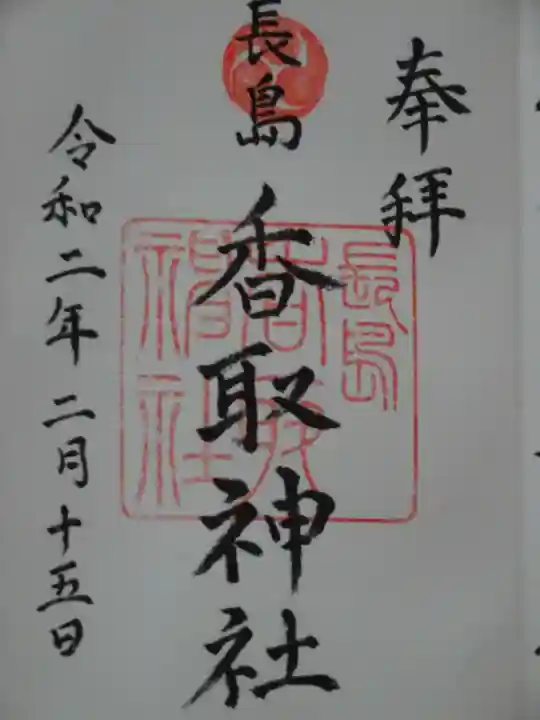 奉拝
長島
香取神社
令和二年二月十五日
長島
香取
神社